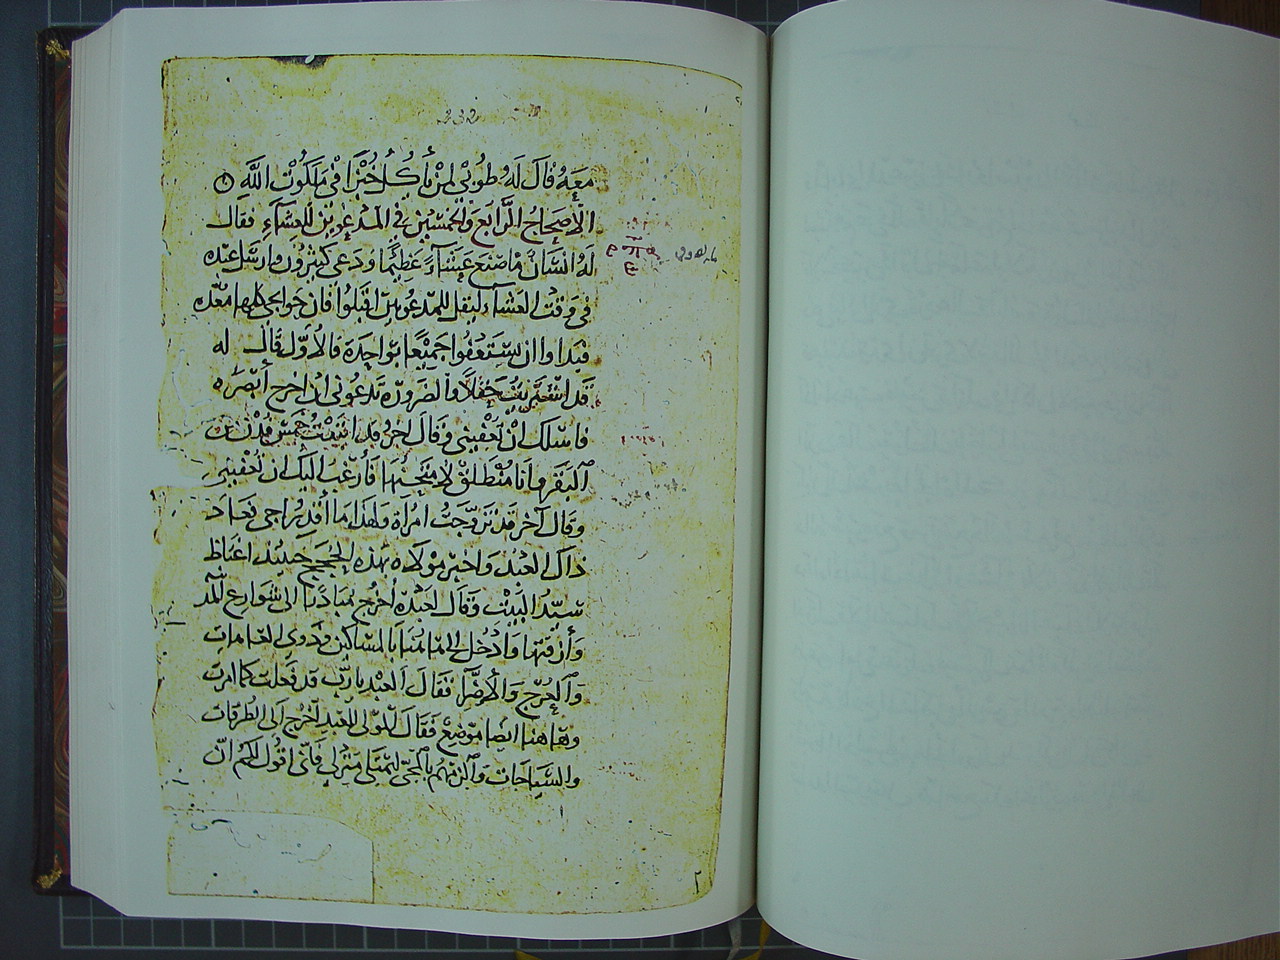 معه قال له طوبى لمن يأكل خبزا في ملكوت الله
الاصحاح الرابع والخمسين في المدعوين للعشاء فقال
له انسان ما صنع عشاء عظيما ودعى كثيرون وارسل عبده
في وقت العشاء ليقل للمدعوين اقبلوا فان حوايجي كلها معده
فبداوا ان يستعفوا جميعا بواحدة فالاول قال له
قد اشتريت حقلا والضرورة تدعوني ان اخرج أبصره
فاسلك ان تعفيني وقال اخر قد ابتعت خمس فدن من
البقر وانا منطلق لامتحنها فأرغب اليك ان تعفيني
وقال آخر قد تزوجت امرأة ولهذا ما أقدر اجي فعاد
ذاك العبد واخبر مولاه بهذه الحجج حينئذ اغتاظ
سيد البيت وقال لعبده اخرج مبادرا الى شوارع
وأزقتها وادخل الى المساكين وذوي العاهات
والعرج والأضرا فقال العبد يارب قد فعلت كما امرت
وهاهنا ايضا موضع فقال المولى للعبد اخرج الى الطرقات
والسياجات والزمهم بالمجي ليمتلي منزلي فاني اقول لكم ان